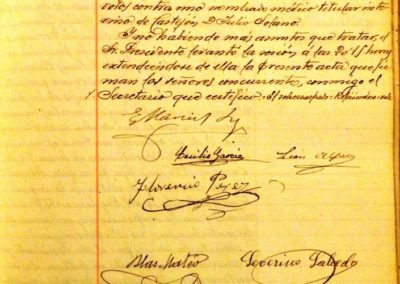 votos contra uno nombrar médico titular inte
rino de Castejón D. Julio Solano.
Y no habiendo más asuntos que tratar, el
Sr. Presidente levantó la sesión a las 20'15 horas
extendiéndose de ella la presente acta que fir
man los señores concurrentes, conmigo el
Secretario que certifico.
Cecilio García
León
Florencio Pérez
Blas Mateo Severino Salcedo